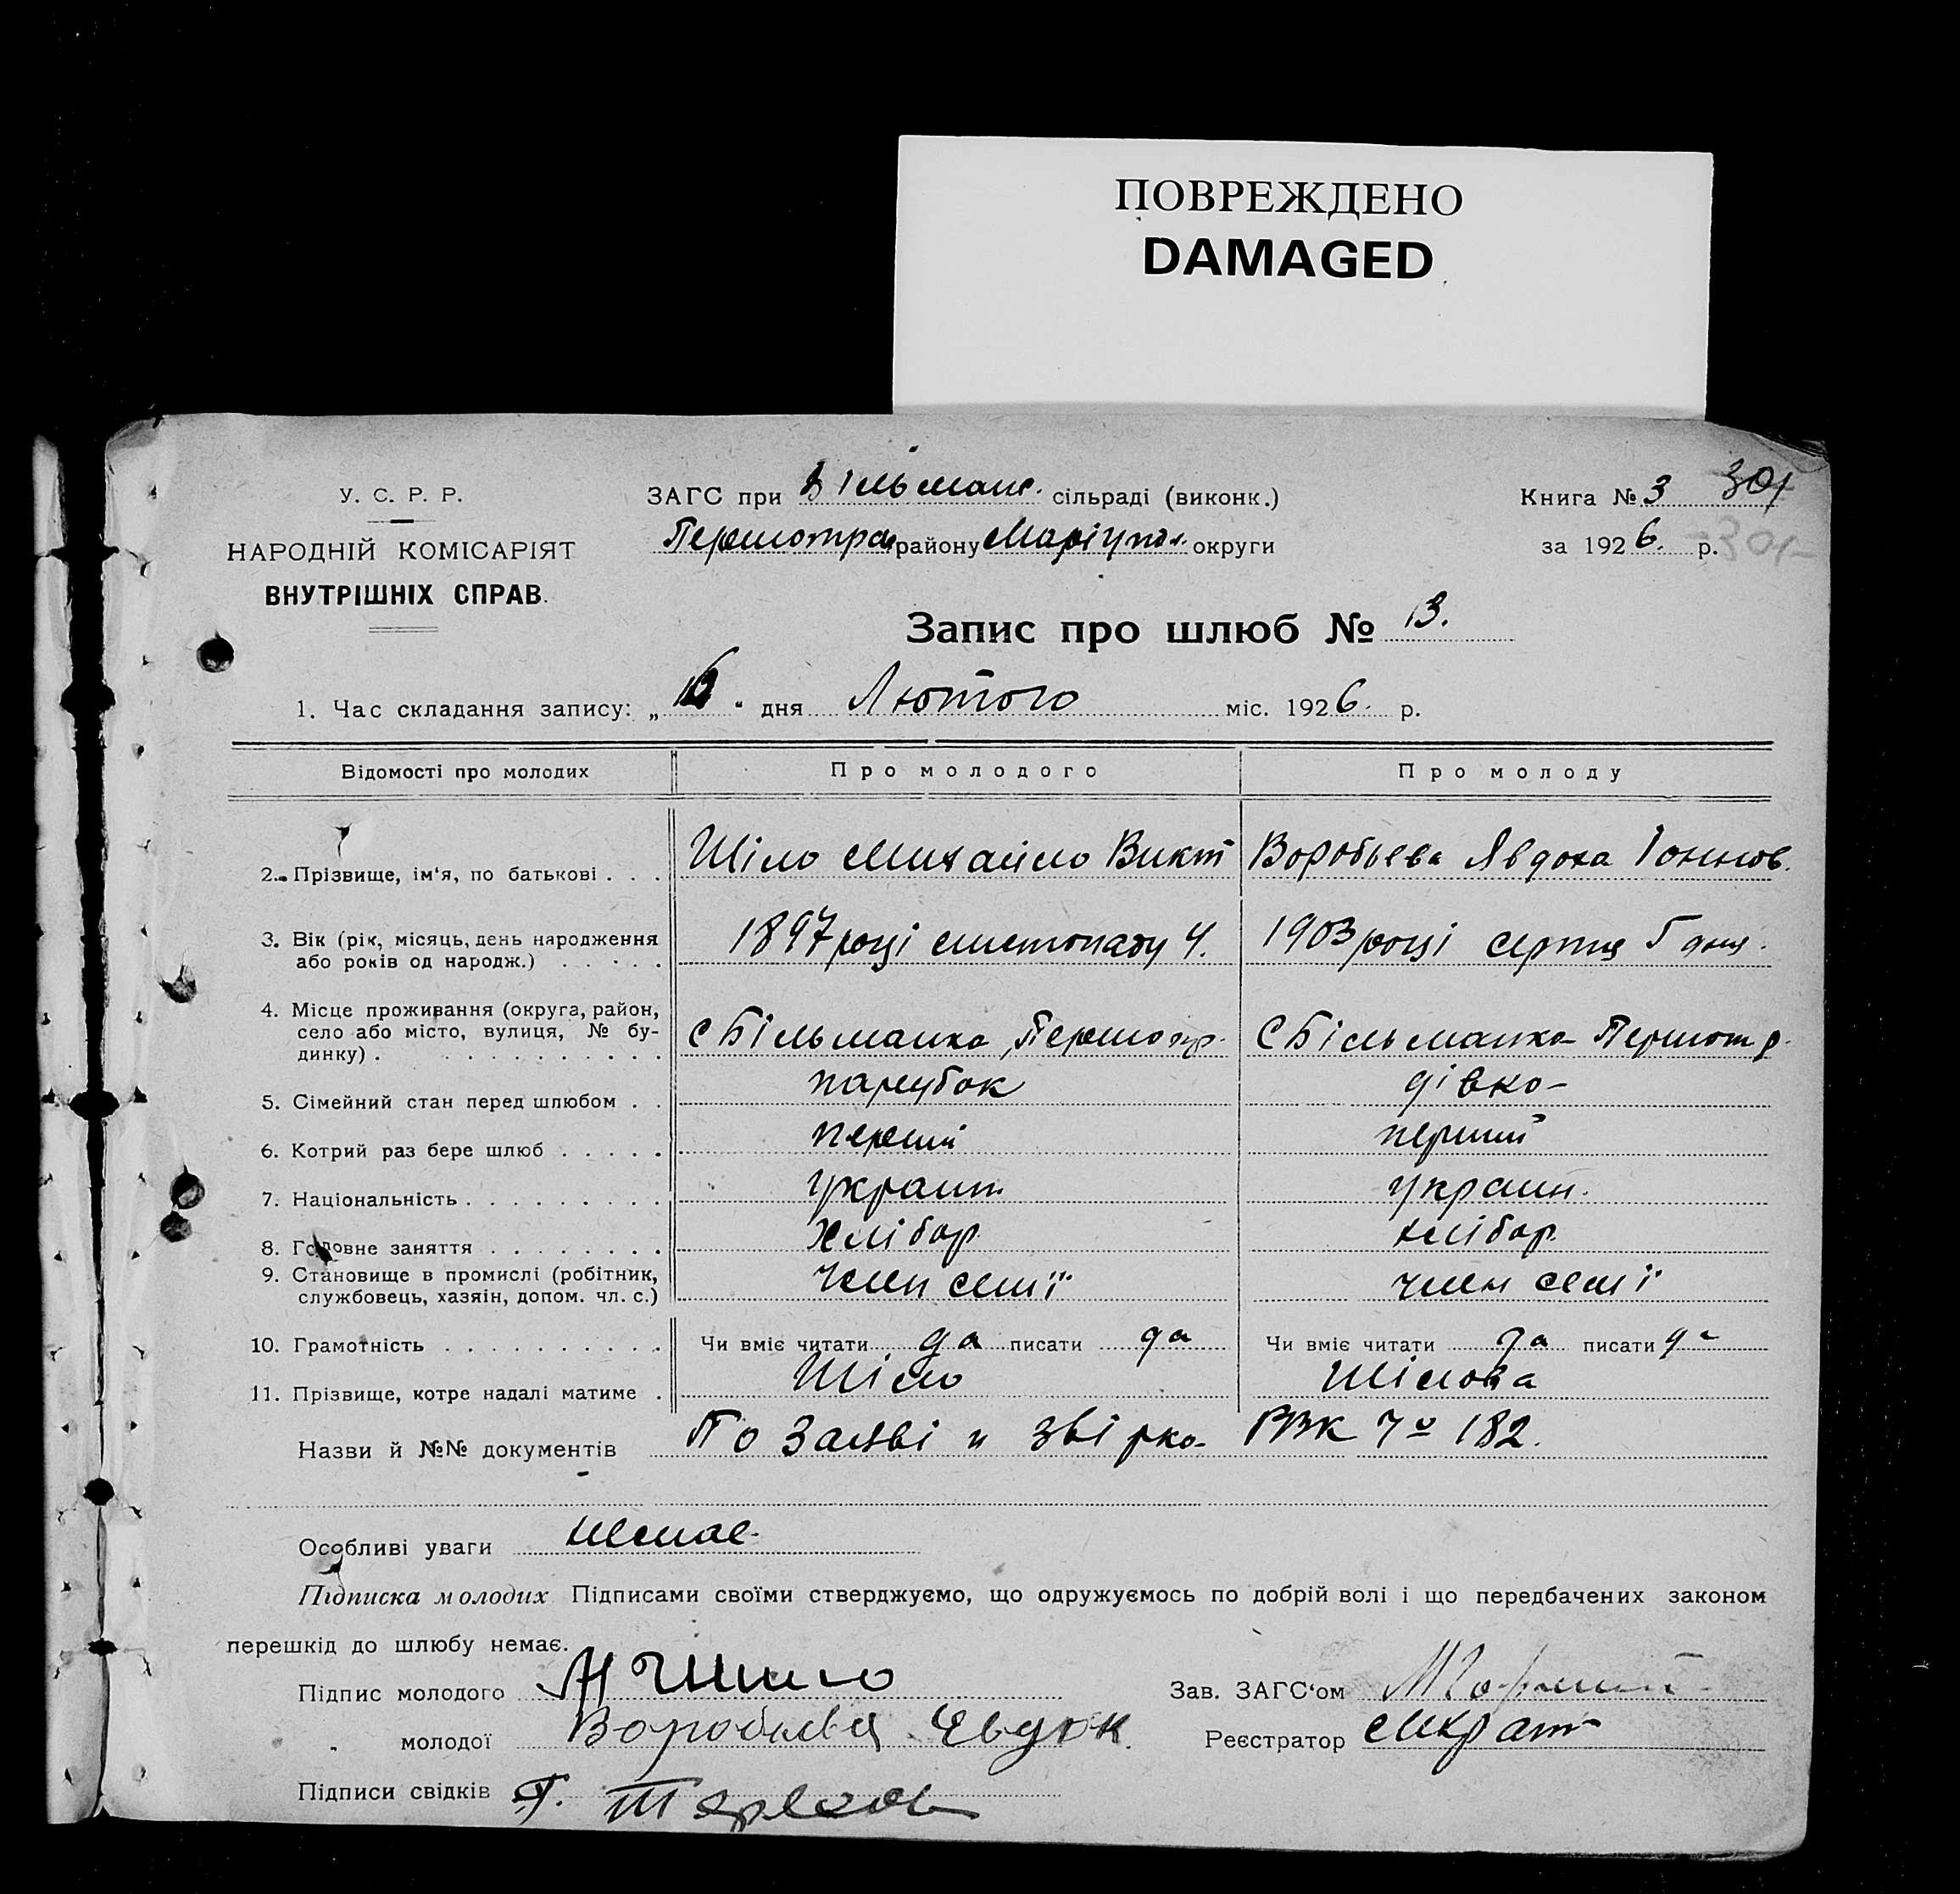 ПОВРЕЖДЕНО
DAMAGED
У. С. Р. Р.
НАРОДНІЙ КОМІСАРІЯТ
ВНУТРІШНІХ СПРАВ.
ЗАГС при Більманс. сільраді (виконк.)
Першотрав району Маріупол. округи
Книга № 3 301
за 1926. р. 301
Запис про шлюб № 13.
1. Час складання запису: „ 16 “ дня Лютого міс. 1926. р.
Відомості про молодих Про молодого Про молоду
2. Прізвище, ім'я, по батькові . . . Шіло Михайло Викт Воробьева Явдоха Іоннов.
3. Вік (рік, місяць, день народження
або років од народж.) . . . . . 1897 році листопаду 4. 1903 році серпня 5 дня.
4. Місце проживання (округа, район,
село або місто, вулиця, № бу-
динку) . . . . . . . . . . . с Більманка, Першотр. С Більманка Першотр.
5. Сімейний стан перед шлюбом . . парубок дівка
6. Котрий раз бере шлюб . . . . . перший перший
7. Національність . . . . . . . . . україн. україн.
8. Головне заняття . . . . . . . . хлібор. хлібор.
9. Становище в промислі (робітник,
службовець, хазяін, допом. чл. с.) член семї член семї
10. Грамотність . . . . . . . . . . Чи вміє читати да писати да Чи вміє читати да писати да
11. Прізвище, котре надалі матиме . Шіло Шілова
Назви й №№ документів По Заяві и звірко РВК 182.
Особливі уваги немае
Підписка молодих Підписами своїми стверджуємо, що одружуємось по добрій волі і що передбачених законом
перешкід до шлюбу немає.
Підпис молодого М Шило
Зав. ЗАГС'ом
„ молодої Воробьева Евдок.
Реєстратор
Підписи свідків Г.